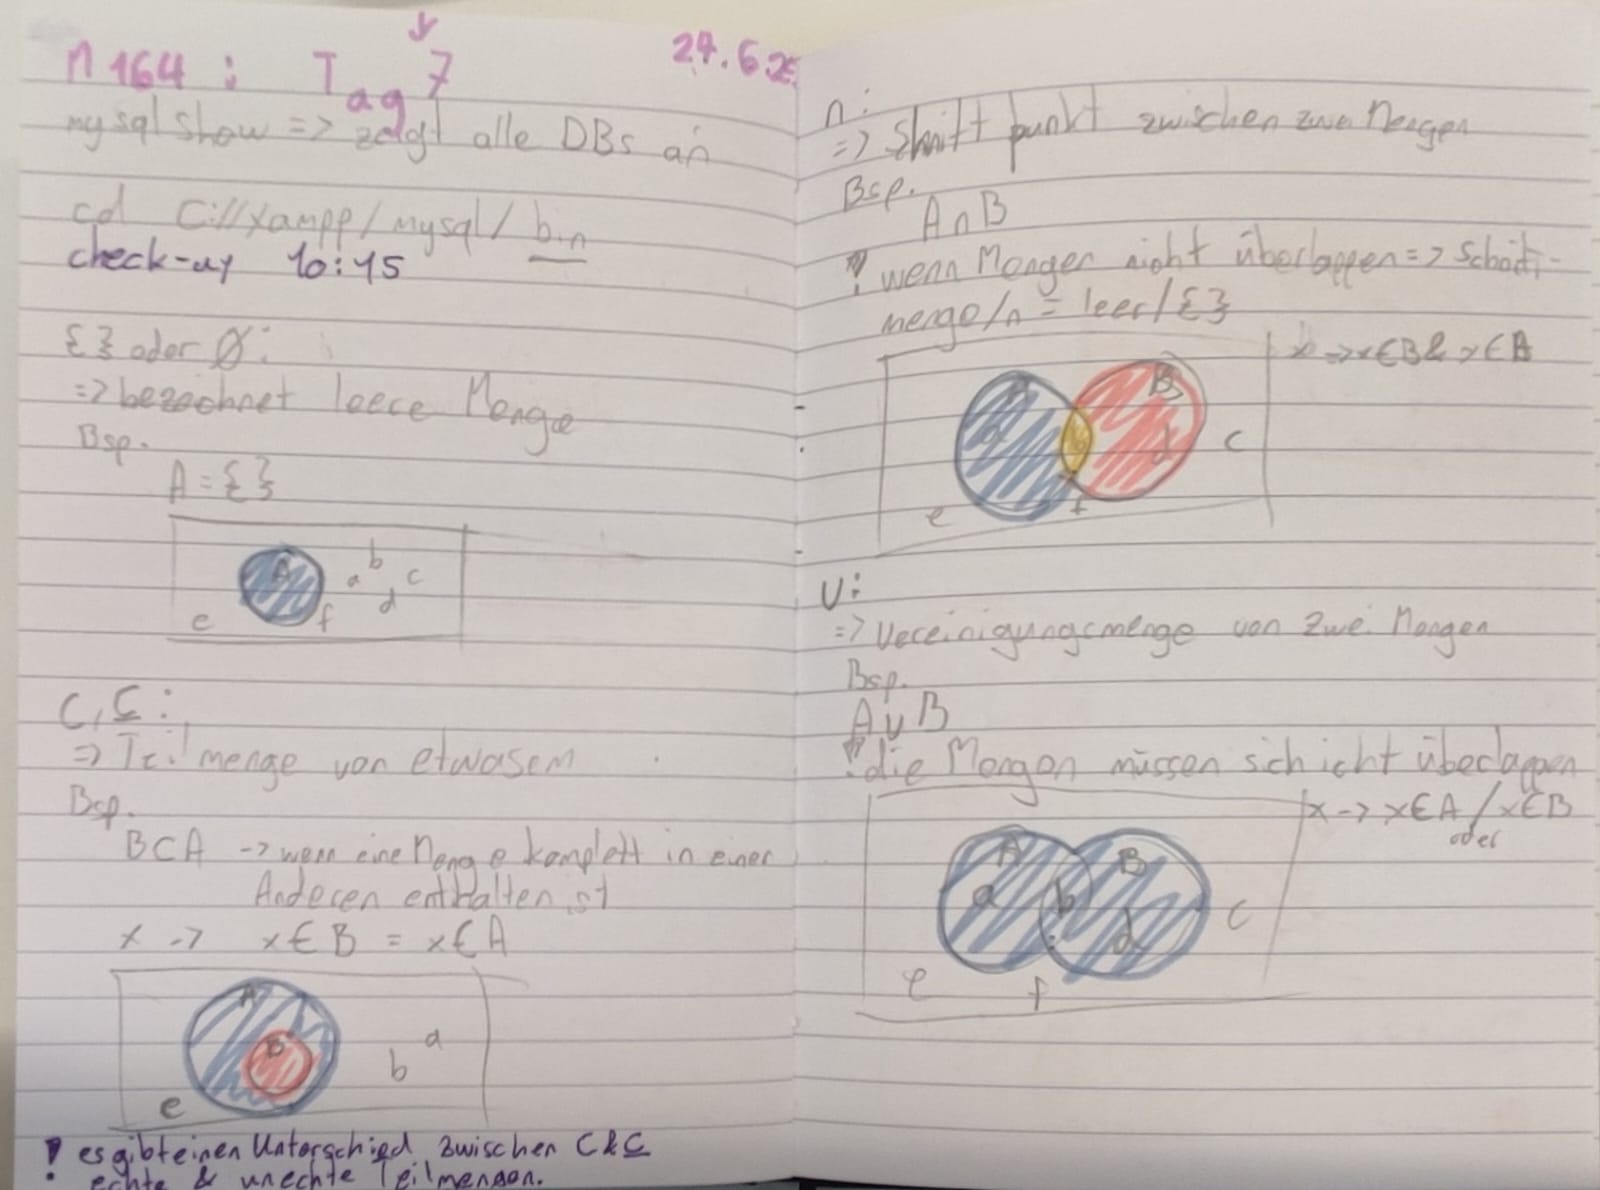 M 164 : Tag 7
24.6.25
mysqlshow => zeigt alle DBs an
cd C://xampp/mysql/bin
check-uy 10:45
{} oder Ø:
=> bezeichnet leere Menge
Bsp.
A = {}
A
b
a
c
d
e
f
⊂, ⊆ :
=> Teilmenge von etwasem
Bsp.
B⊂A -> wenn eine Menge komplett in einer
Anderen enthalten ist
x -> x∈B = x∈A
A
B
a
b
e
! es gibt einen Unterschied zwischen ⊂ & ⊆
echte & unechte Teilmengen.
∩:
=> Shnittpunkt zwischen zwei Mengen
Bsp.
A∩B
! wenn Mengen nicht überlappen =>
menge/∩ = leer/{}
x -> x∈B & x∈A
A
B
a
b
d
c
e
f
∪:
=> Vereinigungsmenge von zwei Mengen
Bsp.
A∪B
! die Mengen müssen sich icht überlappen
x -> x∈A / x∈B
oder
A
B
a
b
d
c
e
f